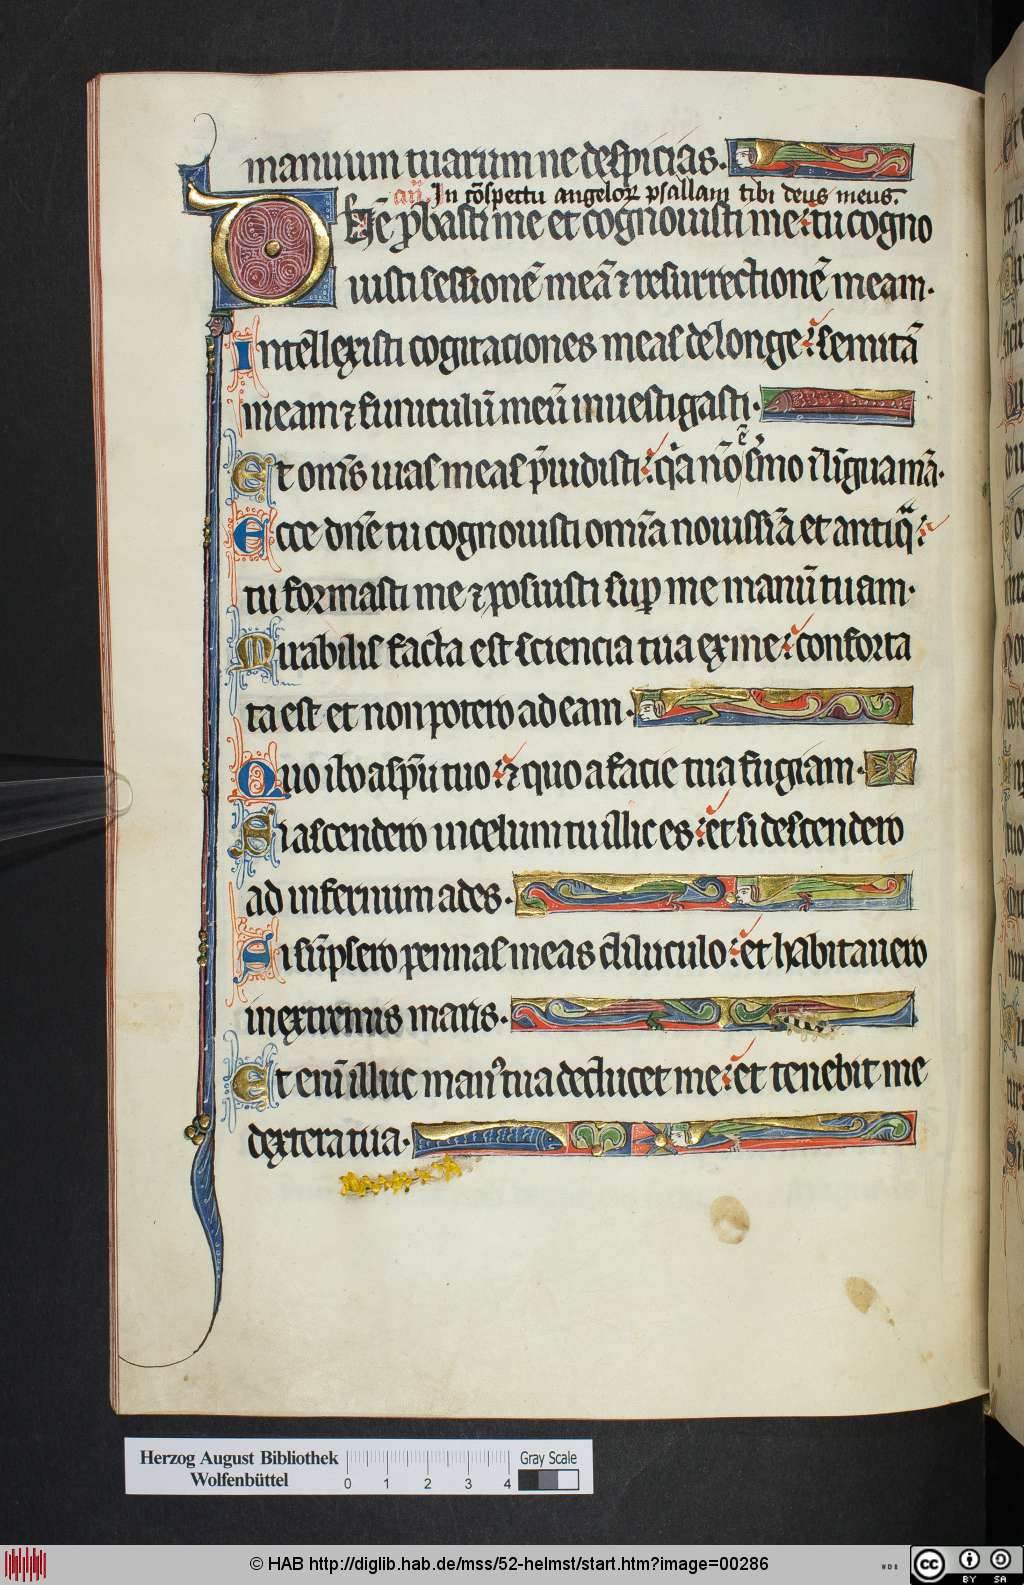 manuum tuarum ne despicias.
añ. In cōspectu angeloꝝ psallam tibi deus meus.
DÑE ꝓbasti me et cognouisti me: tu cogno
uisti sessionē meā ⁊ resurrectionē meam.
Intellexisti cogitationes meas de longe: semitā
meam ⁊ funiculū meū inuestigasti.
Et om̄s uias meas p̄uidisti: q̄a nō ē s̄mo ī līgua mā.
Ecce dn̄e tu cognouisti om̄ia nouissīa et antiq̄:
tu formasti me ⁊ posuisti suꝑ me manū tuam.
Mirabilis facta est sciencia tua ex me: conforta
ta est et non potero ad eam.
Quo ibo a sp̄u tuo: ⁊ quo a facie tua fugiam.
Si ascendero in celum tu illic es: et si descendero
ad infernum ades.
Si sūpsero pennas meas diluculo: et habitauero
in extremis maris.
Et enī illuc manꝰ tua deducet me: et tenebit me
dextera tua.
Herzog August Bibliothek
Wolfenbüttel
0 1 2 3 4
Gray Scale
© HAB http://diglib.hab.de/mss/52-helmst/start.htm?image=00286
WDB
cc BY SA